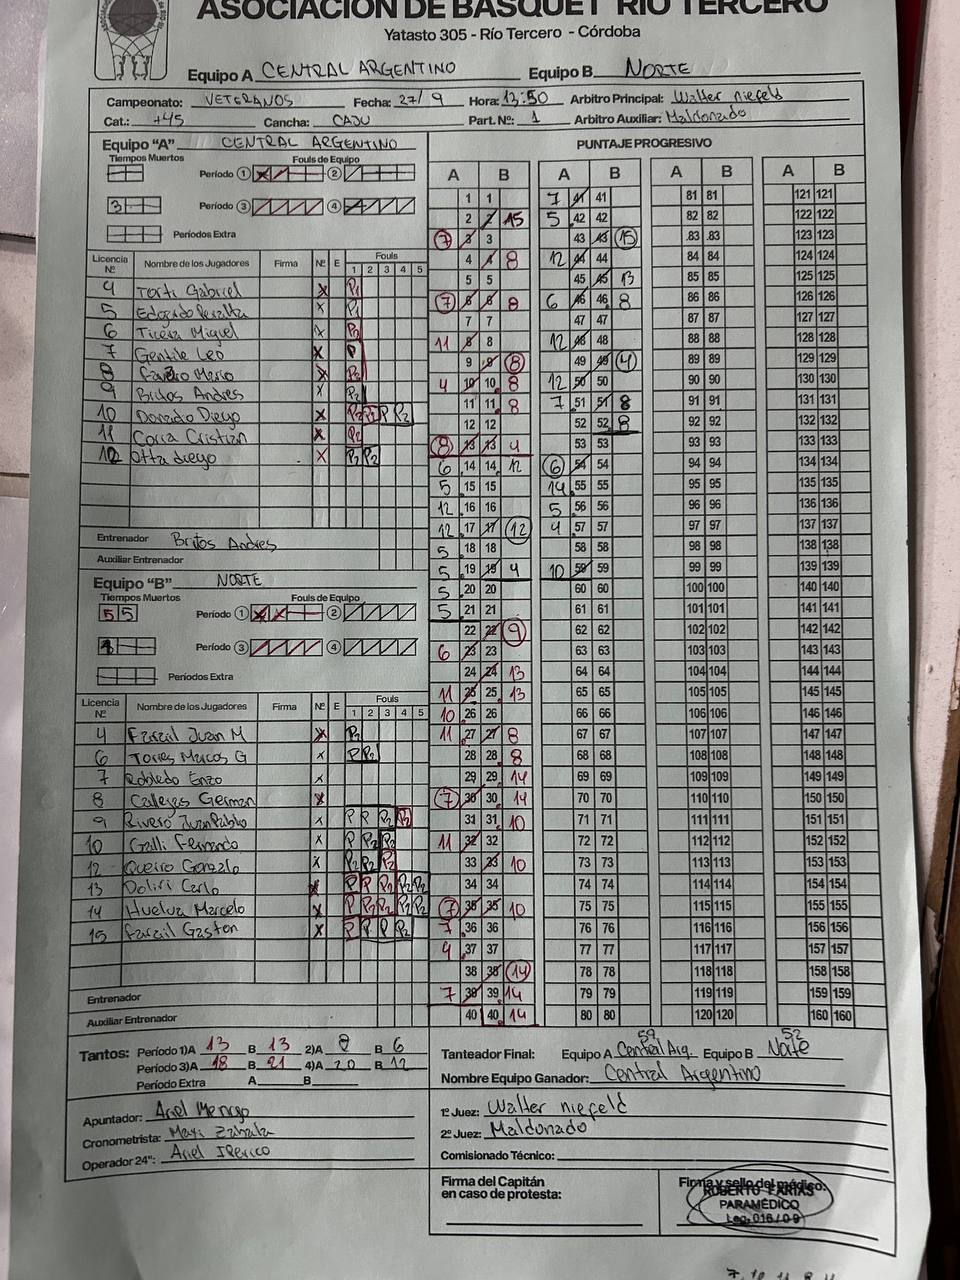 ASOCIACIÓN DE BÁSQUET RÍO TERCERO
Yatasto 305 - Río Tercero - Córdoba
Equipo A CENTRAL ARGENTINO Equipo B NORTE
Campeonato: VETERANOS Fecha: 27/9 Hora: 13:50 Arbitro Principal: Walter niefeld
Cat.: +45 Cancha: CAJU Part. Nº: 1 Arbitro Auxiliar: Maldonado
Equipo "A" CENTRAL ARGENTINO
Tiempos Muertos Fouls de Equipo
Período 1 2
3 Período 3 4
Períodos Extra
Licencia Nº Nombre de los Jugadores Firma Nº E Fouls 1 2 3 4 5
4 Torti Gabriel
5 Edgardo Peralta
6 Ticera Miguel
7 Gentile Leo
8 Favero Mario
9 Britos Andres
10 Donado Diego
11 Coria Cristian
12 Otta diego
Entrenador Britos Andres
Auxiliar Entrenador
Equipo "B" NORTE
Tiempos Muertos Fouls de Equipo
5 5 Período 1 2
Período 3 4
Períodos Extra
Licencia Nº Nombre de los Jugadores Firma Nº E Fouls 1 2 3 4 5
4 Farail Juan M
6 Torres Marcos G
7 Robledo Enzo
8 Callejas German
9 Rivero Juan Pablo
10 Galli Fernando
12 Queiro Gonzalo
13 Carlo
14 Huelva Marcelo
15 Farail Gaston
Entrenador
Auxiliar Entrenador
Tantos: Período 1)A 13 B 13 2)A 8 B 6
Período 3)A 18 B 21 4)A 20 B 12
Período Extra A B
Apuntador: Ariel Mengo
Cronometrista: Maxi Zabala
Operador 24": Ariel
PUNTAJE PROGRESIVO
A B A B A B A B
1 1 7 41 41 81 81 121 121
2 2 15 5 42 42 82 82 122 122
7 3 3 43 43 15 83 83 123 123
4 4 8 12 44 44 84 84 124 124
5 5 45 45 13 85 85 125 125
7 6 6 8 6 46 46 8 86 86 126 126
7 7 47 47 87 87 127 127
11 8 8 12 48 48 88 88 128 128
9 9 8 49 49 4 89 89 129 129
4 10 10 8 12 50 50 90 90 130 130
11 11 8 7 51 51 8 91 91 131 131
12 12 52 52 8 92 92 132 132
8 13 13 4 53 53 93 93 133 133
6 14 14 12 6 54 54 94 94 134 134
5 15 15 14 55 55 95 95 135 135
12 16 16 5 56 56 96 96 136 136
12 17 17 12 4 57 57 97 97 137 137
5 18 18 58 58 98 98 138 138
5 19 19 4 10 59 59 99 99 139 139
5 20 20 60 60 100 100 140 140
5 21 21 61 61 101 101 141 141
22 22 9 62 62 102 102 142 142
6 23 23 63 63 103 103 143 143
24 24 13 64 64 104 104 144 144
11 25 25 13 65 65 105 105 145 145
10 26 26 66 66 106 106 146 146
11 27 27 8 67 67 107 107 147 147
28 28 8 68 68 108 108 148 148
29 29 14 69 69 109 109 149 149
7 30 30 14 70 70 110 110 150 150
31 31 10 71 71 111 111 151 151
11 32 32 72 72 112 112 152 152
33 33 10 73 73 113 113 153 153
34 34 74 74 114 114 154 154
7 35 35 10 75 75 115 115 155 155
7 36 36 76 76 116 116 156 156
9 37 37 77 77 117 117 157 157
38 38 14 78 78 118 118 158 158
7 39 39 14 79 79 119 119 159 159
40 40 14 80 80 120 120 160 160
Tanteador Final: Equipo A Central Arg. 59 Equipo B Norte 52
Nombre Equipo Ganador: Central Argentino
1º Juez: Walter niefeld
2º Juez: Maldonado
Comisionado Técnico:
Firma del Capitán
en caso de protesta:
Firma y sello del médico:
ROBERTO FARIAS
PARAMÉDICO
Leg. 016/09